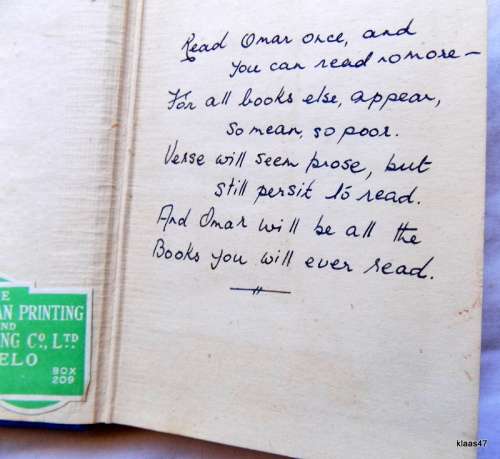 Read Omar once, and
you can read no more –
For all books else, appear,
so mean, so poor.
Verse will seem prose, but
still persit to read.
And Omar will be all the
Books you will ever read.
AN PRINTING
ND
NG Co., LTD
ELO
BOX
209
klaas47